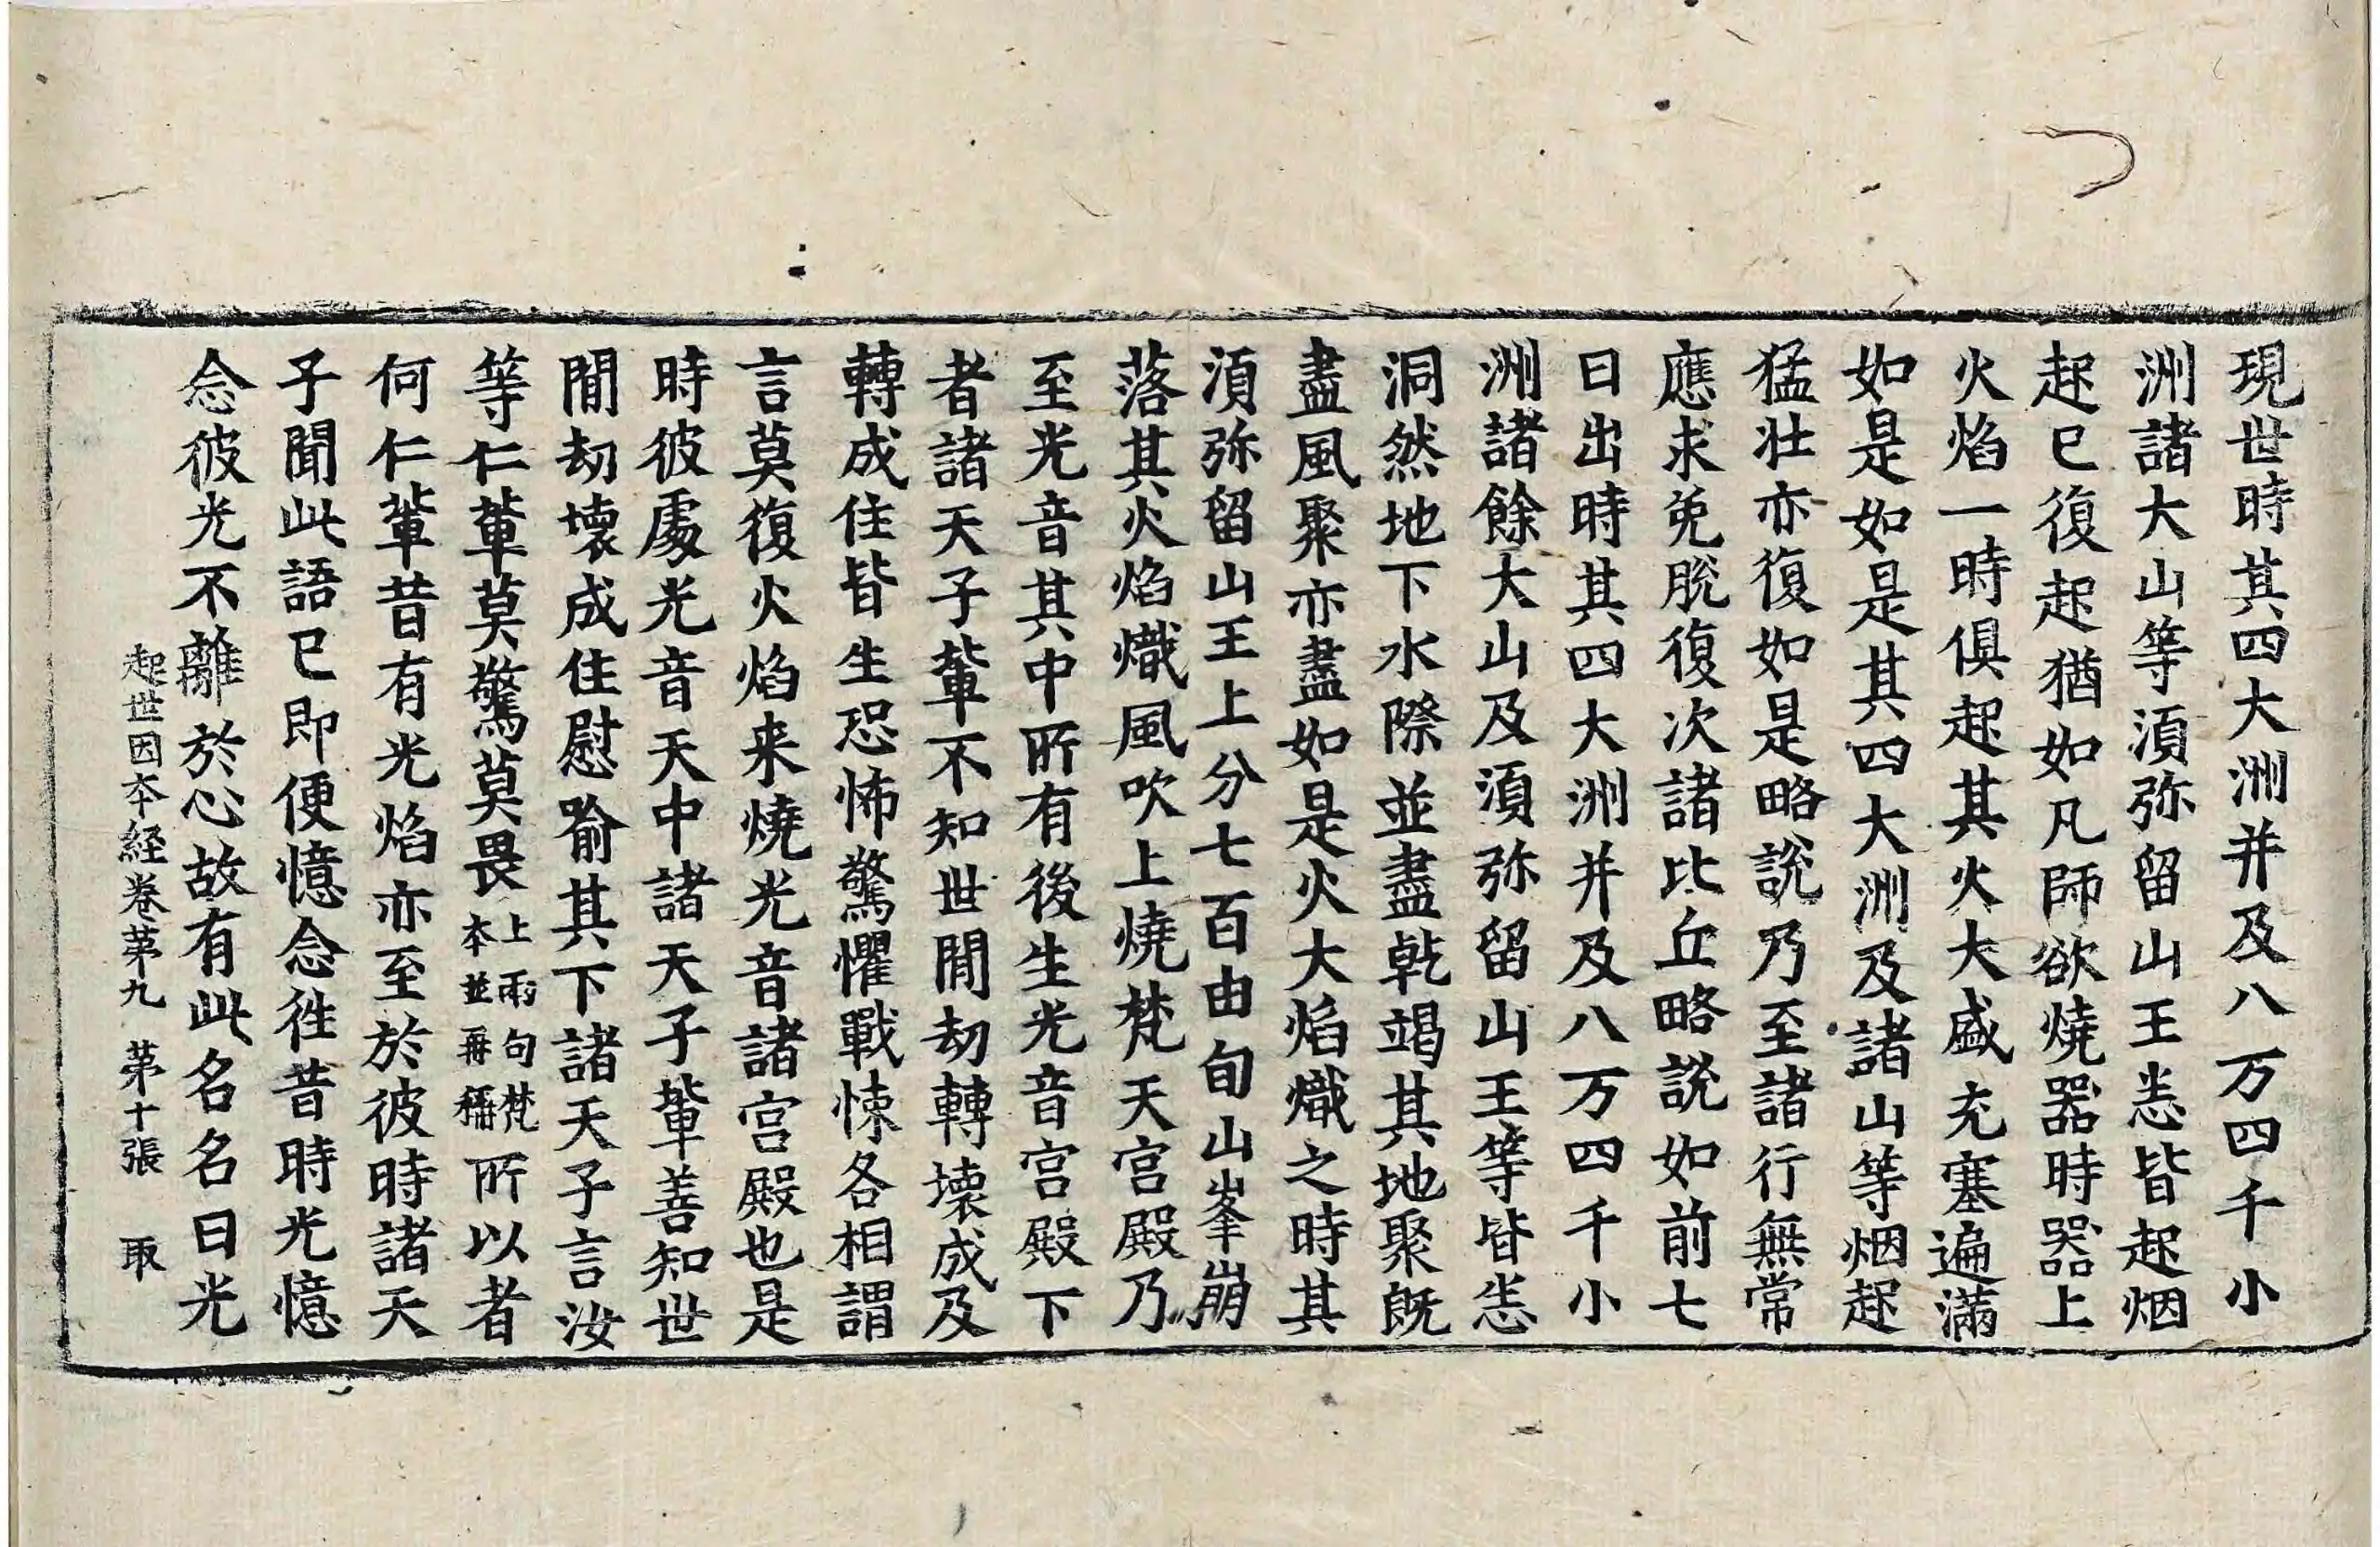 現世時其四大洲并及八万四千小
洲諸大山等湏弥留山王悉皆起烟
起已復起猶如凡師欲燒器時器上
火焰一時俱起其火大盛充塞遍滿
如是如是其四大洲及諸山等烟起
猛壯亦復如是略說乃至諸行無常
應求免脫復次諸比丘略說如前七
日出時其四大洲并及八万四千小
洲諸餘大山及湏弥留山王等皆悉
洞然地下水際並盡乾竭其地聚旣
盡風聚亦盡如是火大焰熾之時其
湏弥留山王上分七百由旬山峯崩
落其火焰熾風吹上燒梵天宮殿乃
至光音其中所有後生光音宮殿下
者諸天子輩不知世間劫轉壞成及
轉成住皆生恐怖驚懼戰悚各相謂
言莫復火焰来燒光音諸宮殿也是
時彼處光音天中諸天子輩善知世
間劫壞成住慰喻其下諸天子言汝
等仁輩莫驚莫畏上兩句梵本並再稱所以者
何仁輩昔有光焰亦至於彼時諸天
子聞此語已即便憶念徃昔時光憶
念彼光不離於心故有此名名曰光
起世因本経卷苐九 苐十張 取